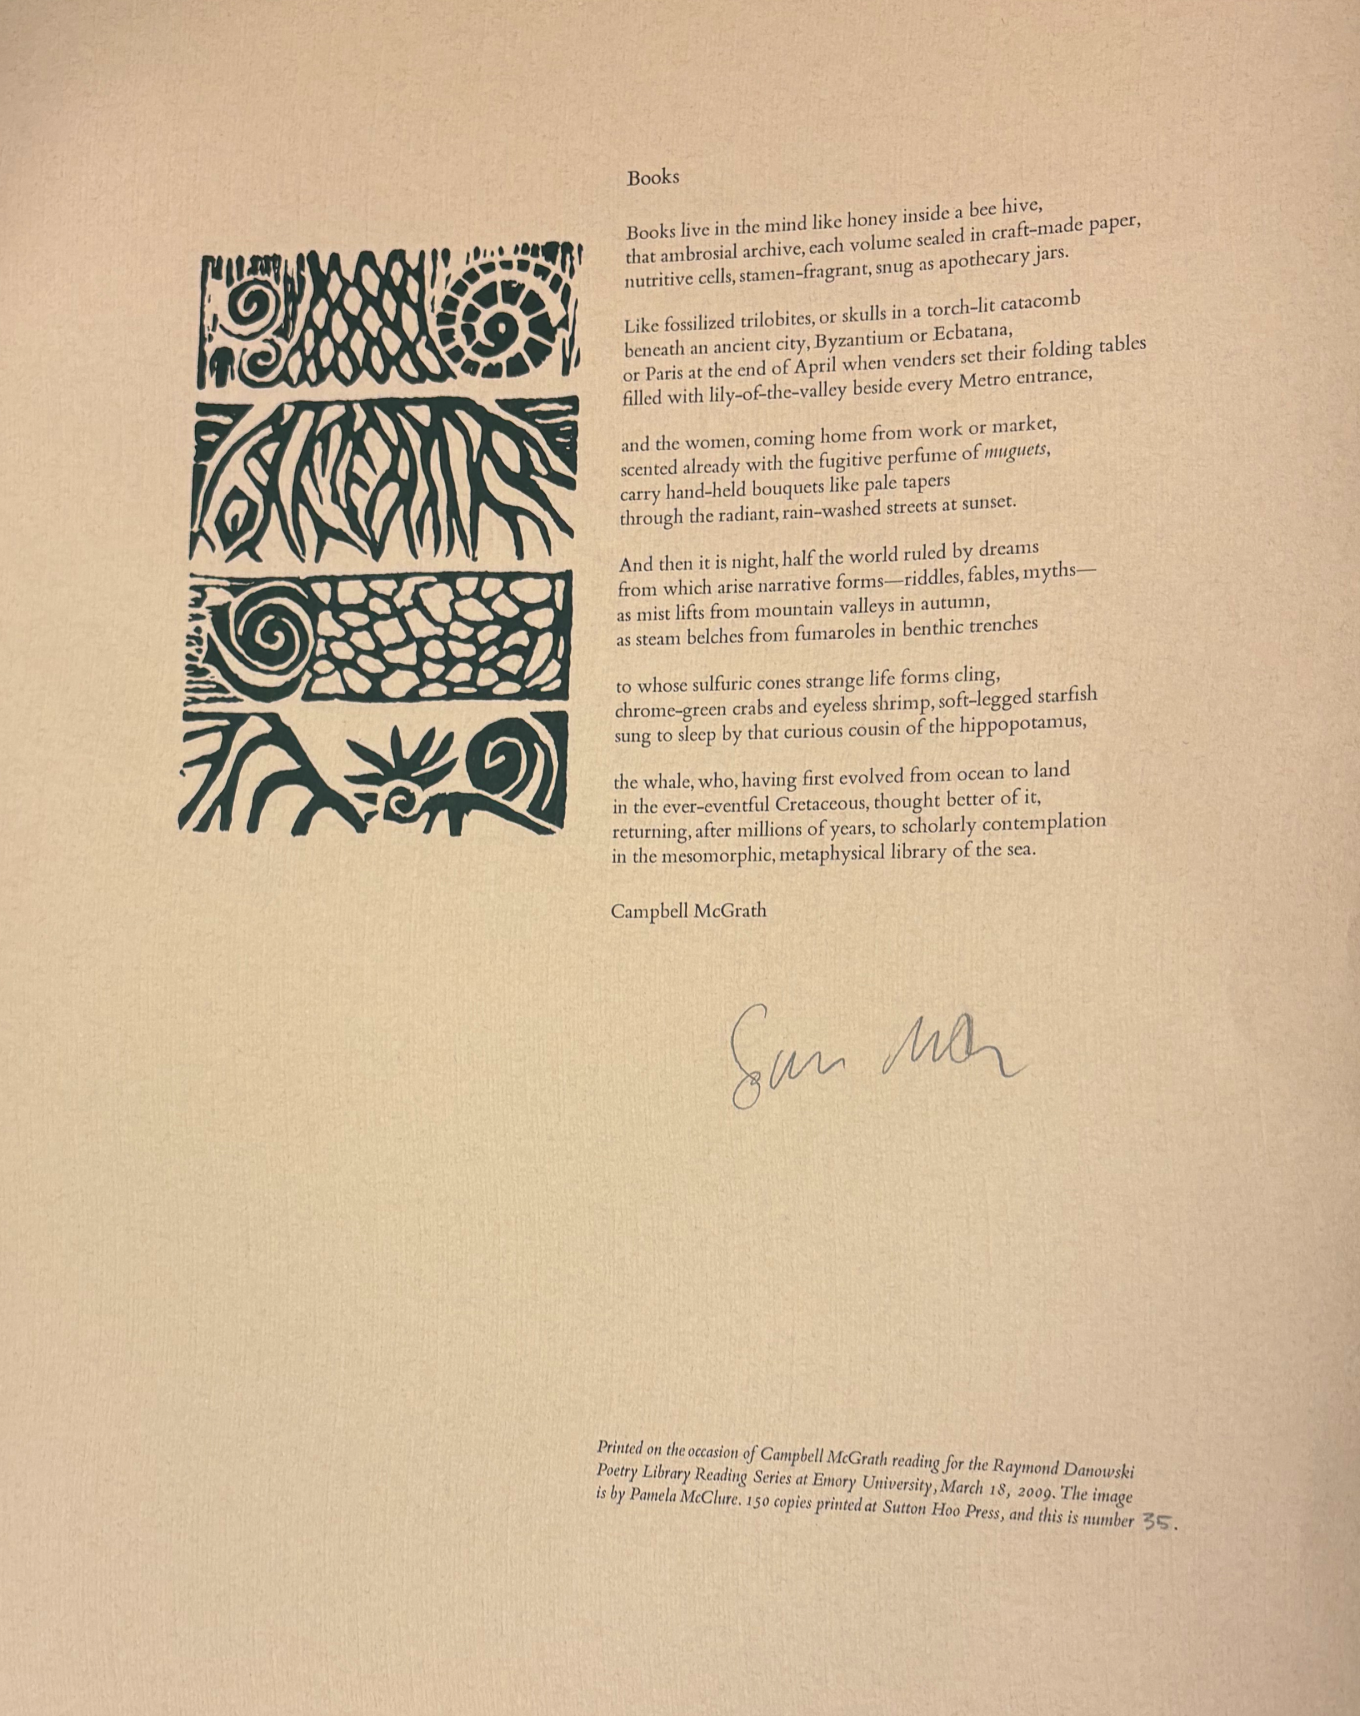 Books
Books live in the mind like honey inside a bee hive,
that ambrosial archive, each volume sealed in craft-made paper,
nutritive cells, stamen-fragrant, snug as apothecary jars.
Like fossilized trilobites, or skulls in a torch-lit catacomb
beneath an ancient city, Byzantium or Ecbatana,
or Paris at the end of April when venders set their folding tables
filled with lily-of-the-valley beside every Metro entrance,
and the women, coming home from work or market,
scented already with the fugitive perfume of muguets,
carry hand-held bouquets like pale tapers
through the radiant, rain-washed streets at sunset.
And then it is night, half the world ruled by dreams
from which arise narrative forms—riddles, fables, myths—
as mist lifts from mountain valleys in autumn,
as steam belches from fumaroles in benthic trenches
to whose sulfuric cones strange life forms cling,
chrome-green crabs and eyeless shrimp, soft-legged starfish
sung to sleep by that curious cousin of the hippopotamus,
the whale, who, having first evolved from ocean to land
in the ever-eventful Cretaceous, thought better of it,
returning, after millions of years, to scholarly contemplation
in the mesomorphic, metaphysical library of the sea.
Campbell McGrath
Printed on the occasion of Campbell McGrath reading for the Raymond Danowski
Poetry Library Reading Series at Emory University, March 18, 2009. The image
is by Pamela McClure. 150 copies printed at Sutton Hoo Press, and this is number 35.